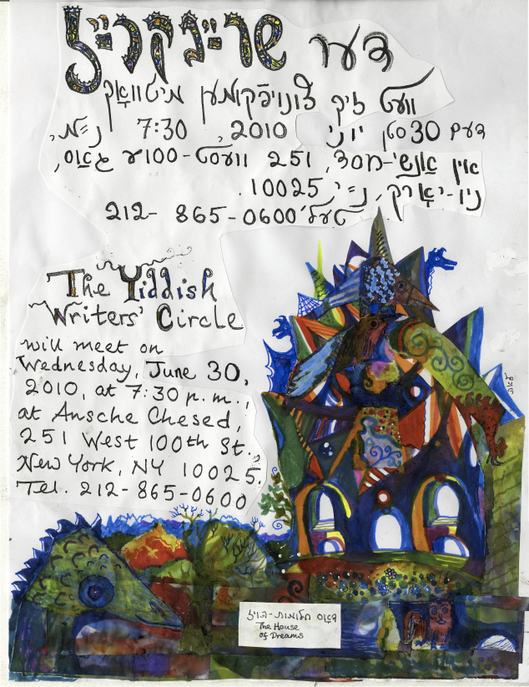 דער שרײַבקרײַז
וועט זיך צונויפֿקומען מיטוואָך
דעם 30סטן יוני 2010, 7:30 נ״מ,
אין אַנשי-חסד, 251 וועסט-100טע גאַס,
ניו-יאָרק, נ״י 10025.
טעל׳ 212-865-0600
The Yiddish
Writers' Circle
will meet on
Wednesday, June 30,
2010, at 7:30 p.m.,
at Ansche Chesed,
251 West 100th St.,
New York, NY 10025.
Tel. 212-865-0600
דאָס חלומות-הויז
The House
of Dreams